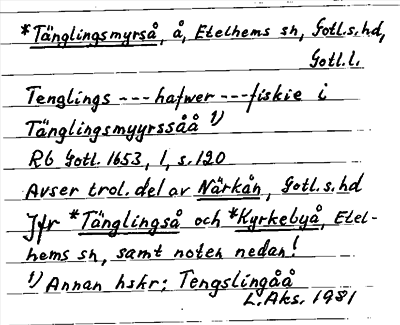 *Tänglingsmyrså, å, Etelhems sn, Gotl.s.hd,
Gotl.l.
Tenglings --- hafwer --- fiskie i
Tänglingsmyyrssåå 1)
Rb Gotl. 1653, 1, s.120
Avser trol. del av Närkån, Gotl.s.hd
Jfr *Tänglingså och *Kyrkebyå, Etel-
hems sn, samt noten nedan!
1) Annan hskr: Tengslingåå
L.Aks. 1981